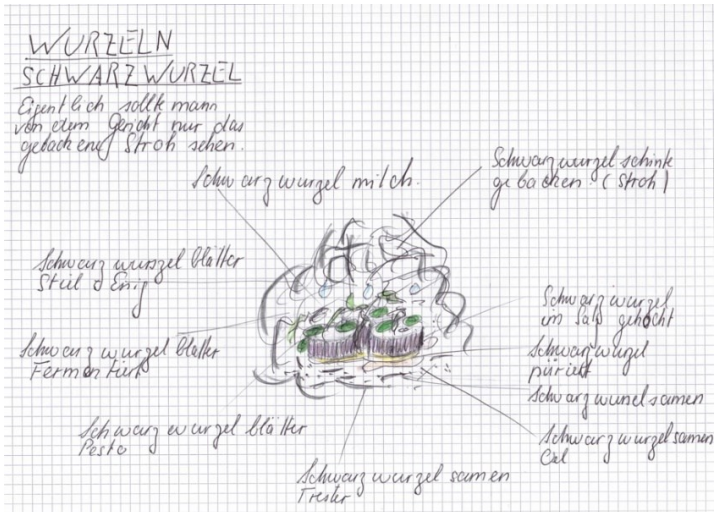 WURZELN
SCHWARZWURZEL
Eigentlich sollte mann
von dem Gericht nur das
gebackene Stroh sehen.
Schwarzwurzel milch.
Schwarzwurzel schinke
gebacken. (Stroh)
Schwarzwurzel blätter
Stiel Enig
Schwarzwurzel blätter
Fermentiert
Schwarzwurzel blätter
Pesto
Schwarzwurzel samen
Trester
Schwarzwurzel
im Salz gekocht
Schwarzwurzel
püriert
Schwarzwurzelsamen
Schwarzwurzelsamen
Oel